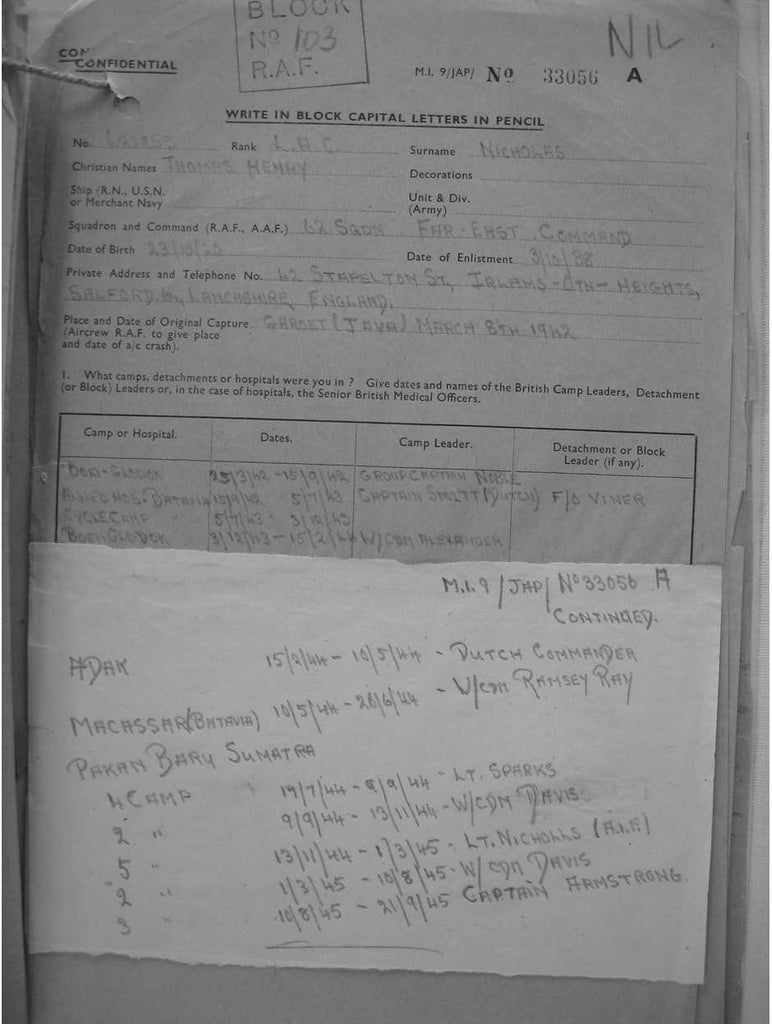 BLOCK
Nº 103
R.A.F.
NIL
CONFIDENTIAL
M.I. 9/JAP/ Nº 33056 A
WRITE IN BLOCK CAPITAL LETTERS IN PENCIL
No. Rank L.A.C. Surname NICHOLAS
Christian Names THOMAS HENRY Decorations
Ship (R.N., U.S.N. or Merchant Navy Unit & Div. (Army)
Squadron and Command (R.A.F., A.A.F.) 62 SQDN FAR-EAST COMMAND
Date of Birth 23/10/20 Date of Enlistment 3/10/38
Private Address and Telephone No. 42 STAPELTON ST, IRLAMS-OTH-HEIGHTS,
SALFORD 6, LANCASHIRE, ENGLAND.
Place and Date of Original Capture GAROET (JAVA) MARCH 8TH 1942
(Aircrew R.A.F. to give place
and date of a/c crash).
1. What camps, detachments or hospitals were you in ? Give dates and names of the British Camp Leaders, Detachment
(or Block) Leaders or, in the case of hospitals, the Senior British Medical Officers.
Camp or Hospital. Dates. Camp Leader. Detachment or Block Leader (if any).
BOEI-GLODOK 25/3/42 - 15/9/42 GROUP CAPTAIN NOBLE
HOS. BATAVIA 15/9/42 5/7/43 CAPTAIN SMITT (DUTCH) F/O VINER
CYCLE CAMP " 5/7/43 3/12/43
BOEI-GLODOK 3/12/43 - 15/2/44 W/CDM ALEXANDER
M.I.9/JAP/Nº33056 A
CONTINUED.
ADAK 15/2/44 - 10/5/44 - DUTCH COMMANDER
MACASSAR (BATAVIA) 10/5/44 - 26/6/44 - W/CDM RAMSEY RAY
PAKAN BARU SUMATRA
4 CAMP 19/7/44 - 9/9/44 - LT. SPARKS
2 " 9/9/44 - 13/11/44 - W/CDM DAVIS
5 " 13/11/44 - 1/3/45 - LT. NICHOLLS (A.I.F)
2 " 1/3/45 - 10/8/45 - W/CDM DAVIS
3 " 10/8/45 - 21/9/45 CAPTAIN ARMSTRONG.